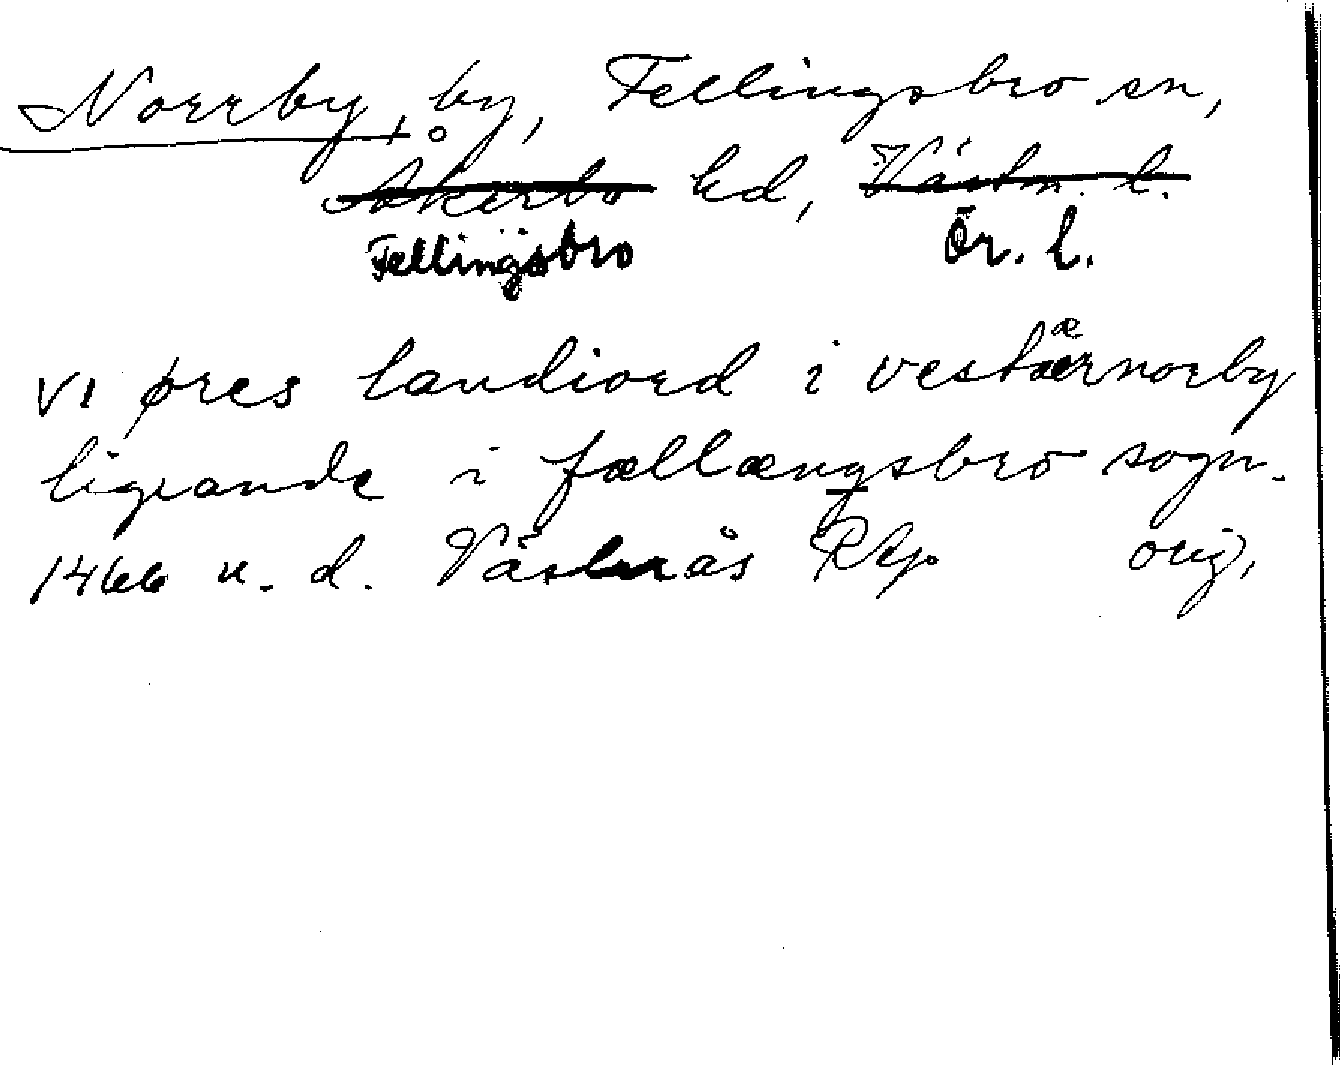 Norrby, by, Fellingsbro sn,
Åkerbo hd, Västm. l.
Fellingsbro Ör. l.
VI øres landiord i vestærnorby
ligiande i fællængsbro sogn.
1466 u. d. Västerås RAp orig,